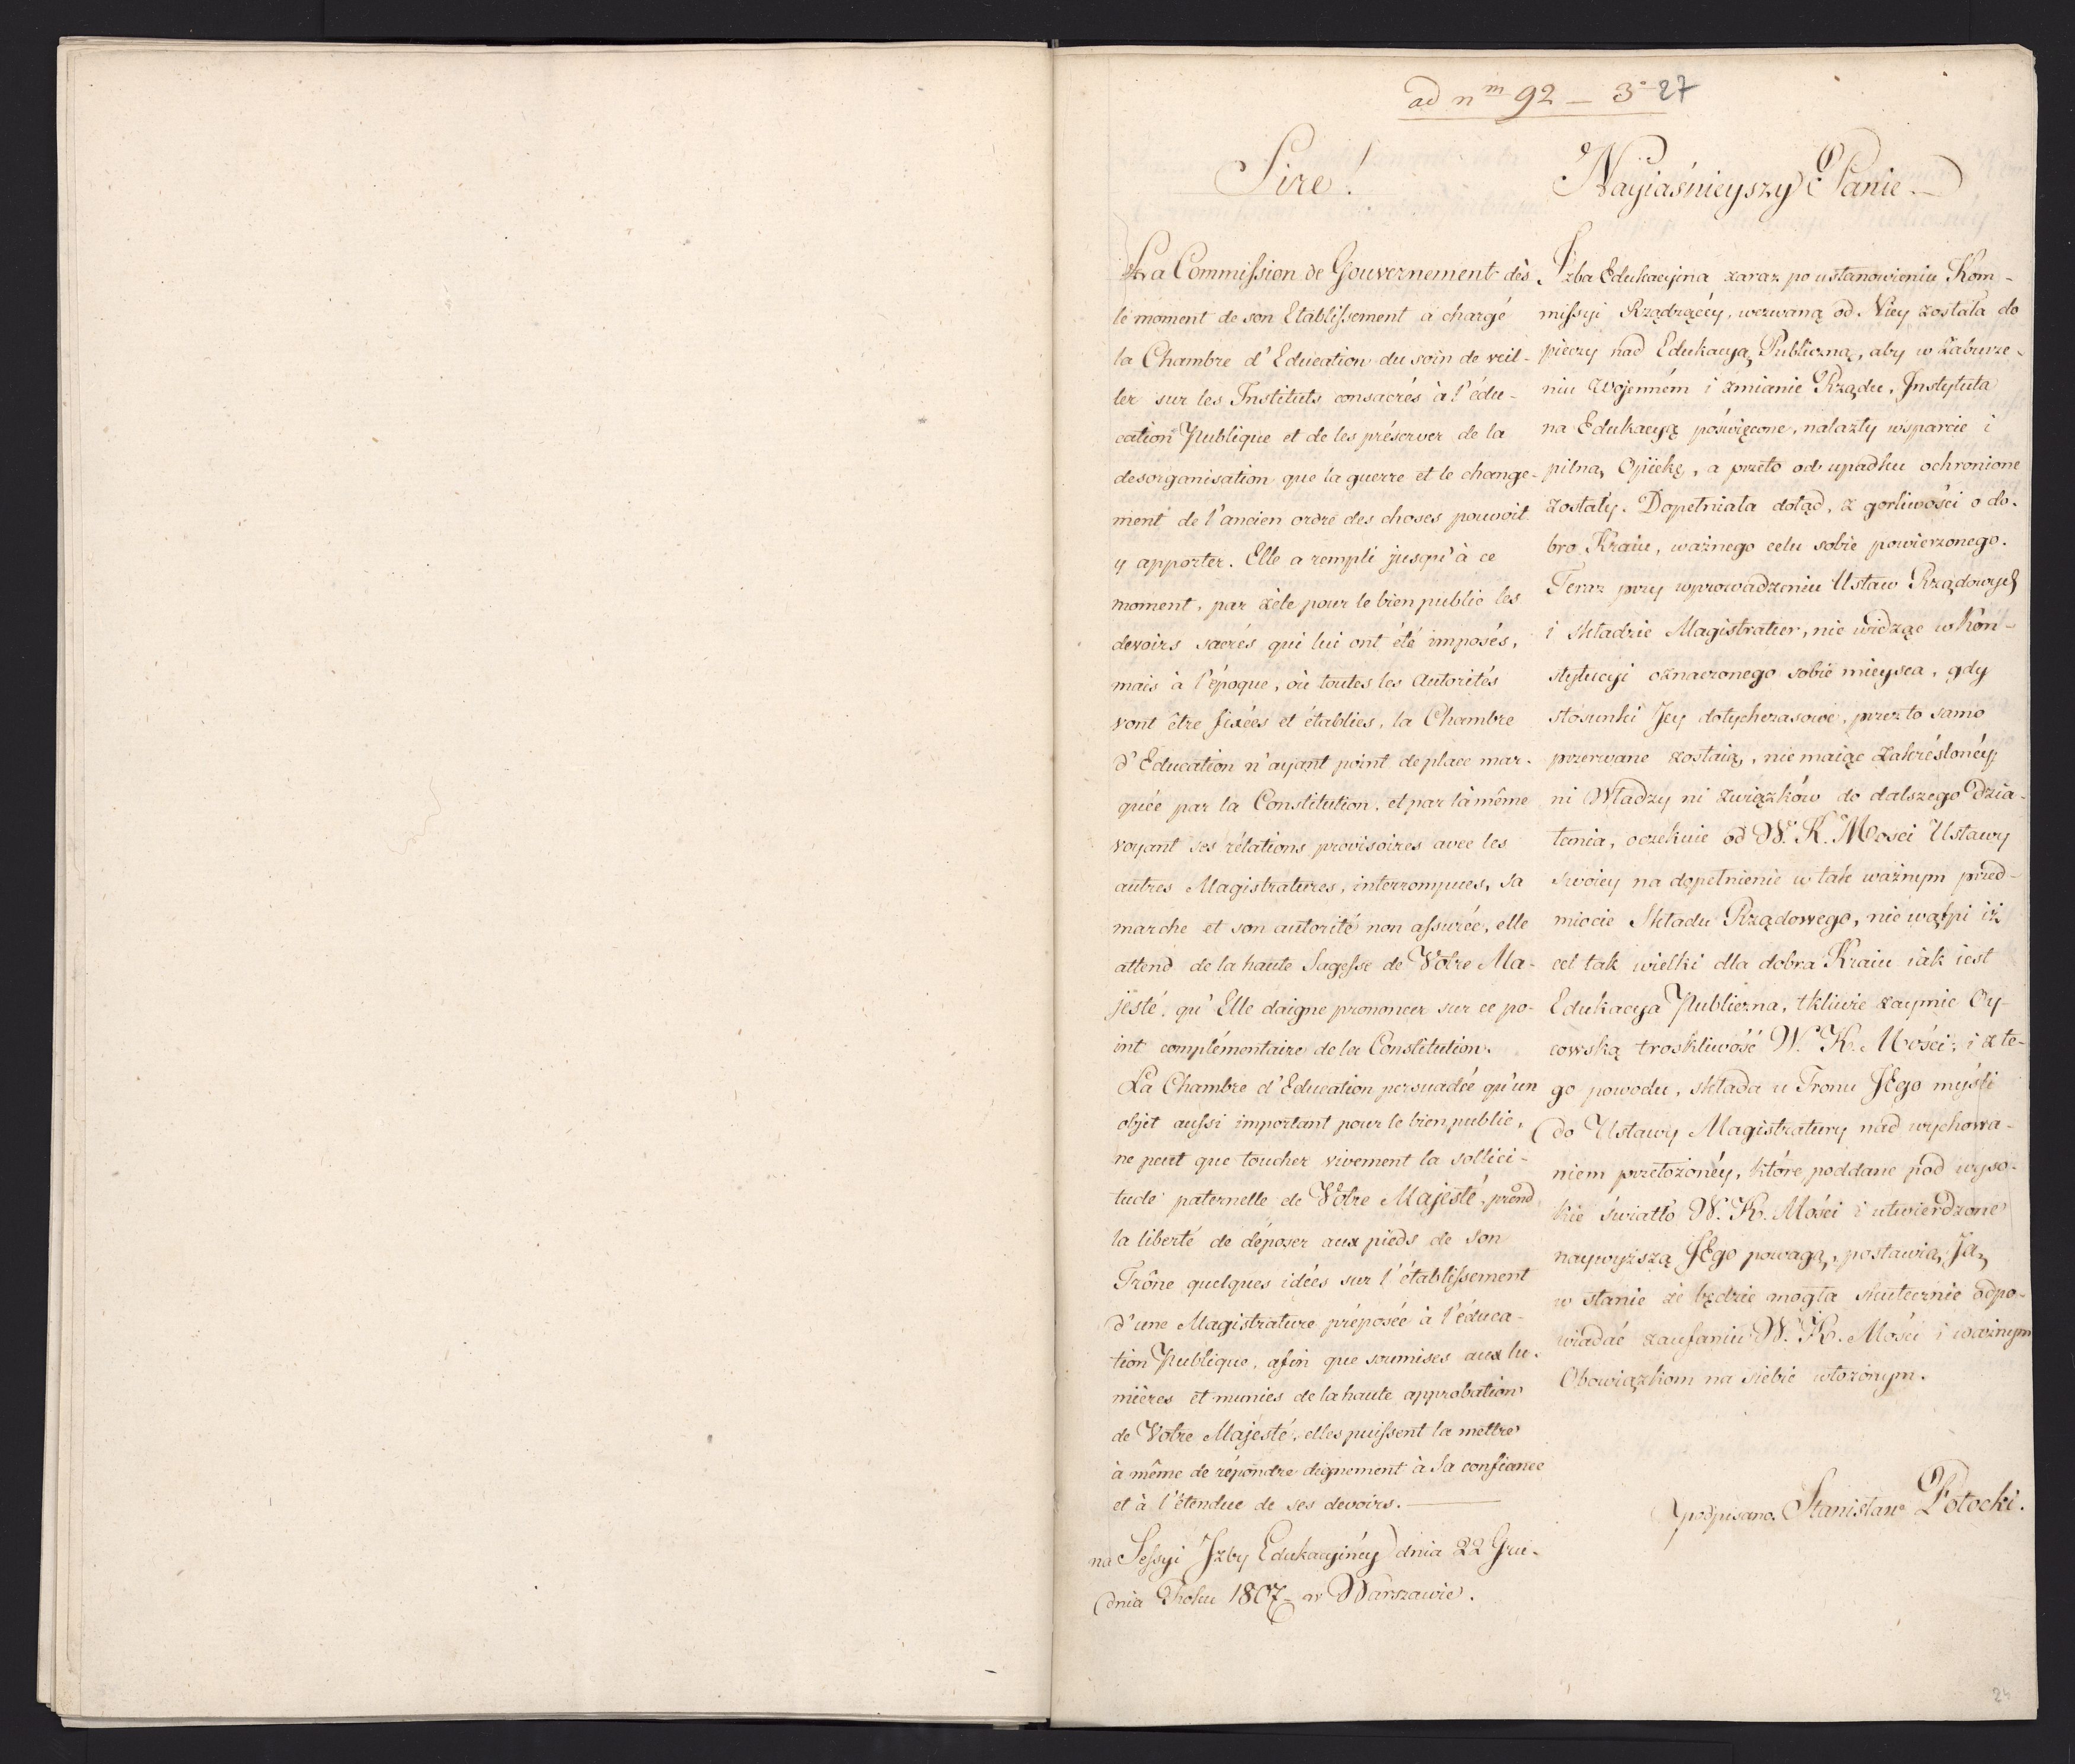 ad n^m 92 — 3° 27
Sire!
La Commission de Gouvernement dès
le moment de son Etablissement a chargé
la Chambre d'Education du soin de veil-
ler sur les Instituts consacrés à l'édu-
cation Publique et de les préserver de la
desorganisation que la guerre et le change-
ment de l'ancien ordre des choses pouvoit
y apporter. Elle a rempli jusqu'à ce
moment, par zèle pour le bien public les
devoirs sacrés qui lui ont été imposés,
mais à l'époque, où toutes les Autorités
vont être fixées et établies, la Chambre
d'Education n'ayant point de place mar-
quée par la Constitution, et par là même
voyant ses rélations provisoires avec les
autres Magistratures, interrompues, sa
marche et son autorité non assurée, elle
attend de la haute Sagesse de Votre Ma-
jesté, qu'Elle daigne prononcer sur ce po-
int complémentaire de la Constitution.
La Chambre d'Education persuadée qu'un
objet aussi important pour le bien public,
ne peut que toucher vivement la sollici-
tude paternelle de Votre Majesté, prend
la liberté de déposer aux pieds de son
Trône quelques idées sur l'établissement
d'une Magistrature préposée à l'éduca-
tion Publique, afin que soumises aux lu-
mières et munies de la haute approbation
de Votre Majesté, elles puissent la mettre
à même de répondre dignement à Sa confiance
et à l'étendue de ses devoirs. —
na Sessyi Izby Edukacyinéy dnia 22 Gru-
dnia Roku 1807 w Warszawie.
Nayiaśnieyszy Panie.
Izba Edukacyjna zaraz po ustanowieniu Kom-
missyi Rządzącéy, wezwaną od Niey została do
pieczy nad Edukacyą Publiczną, aby w Zaburze-
niu Wojenném i zmianie Rządu, Instytuta
na Edukacyą poświęcone, nalazły wsparcie i
pilną Opiekę, a przeto od upadku ochronione
zostały. Dopełniała dotąd, z gorliwości o do-
bro Kraiu, ważnego celu sobie powierzonego.
Teraz przy wprowadzeniu Ustaw Rządowych
i Składzie Magistratur, nie widząc w Kon-
stytucyi oznaczonego sobie mieysca, gdy
stosunki Jey dotychczasowe, przez to samo
przerwane zostaią, nie maiąc Zakréślonéy
ni Władzy ni związków do dalszego Dzia-
łania, oczekuie od W. K. Mosci Ustawy
swoiey na dopełnienie w tak ważnym przed-
miocie Składu Rządowego, nie wątpi iż
cel tak wielki dla dobra Kraiu iak iest
Edukacya Publiczna, tkliwie zaymie Oy-
cowską troskliwość W. K. Mości, i z te-
go powodu, składa u Tronu JEgo myśli
do Ustawy Magistratury nad wychowa-
niem przełożonéy, które poddane pod wyso-
kie światło W. K. Mości i utwierdzone
naywyższą JEgo powagą, postawią Ją
w stanie że będzie mogła skutecznie odpo-
wiadać zaufaniu W. K. Mości i ważnym
Obowiązkom na siebie włożonym.
podpisano Stanisław Potocki.